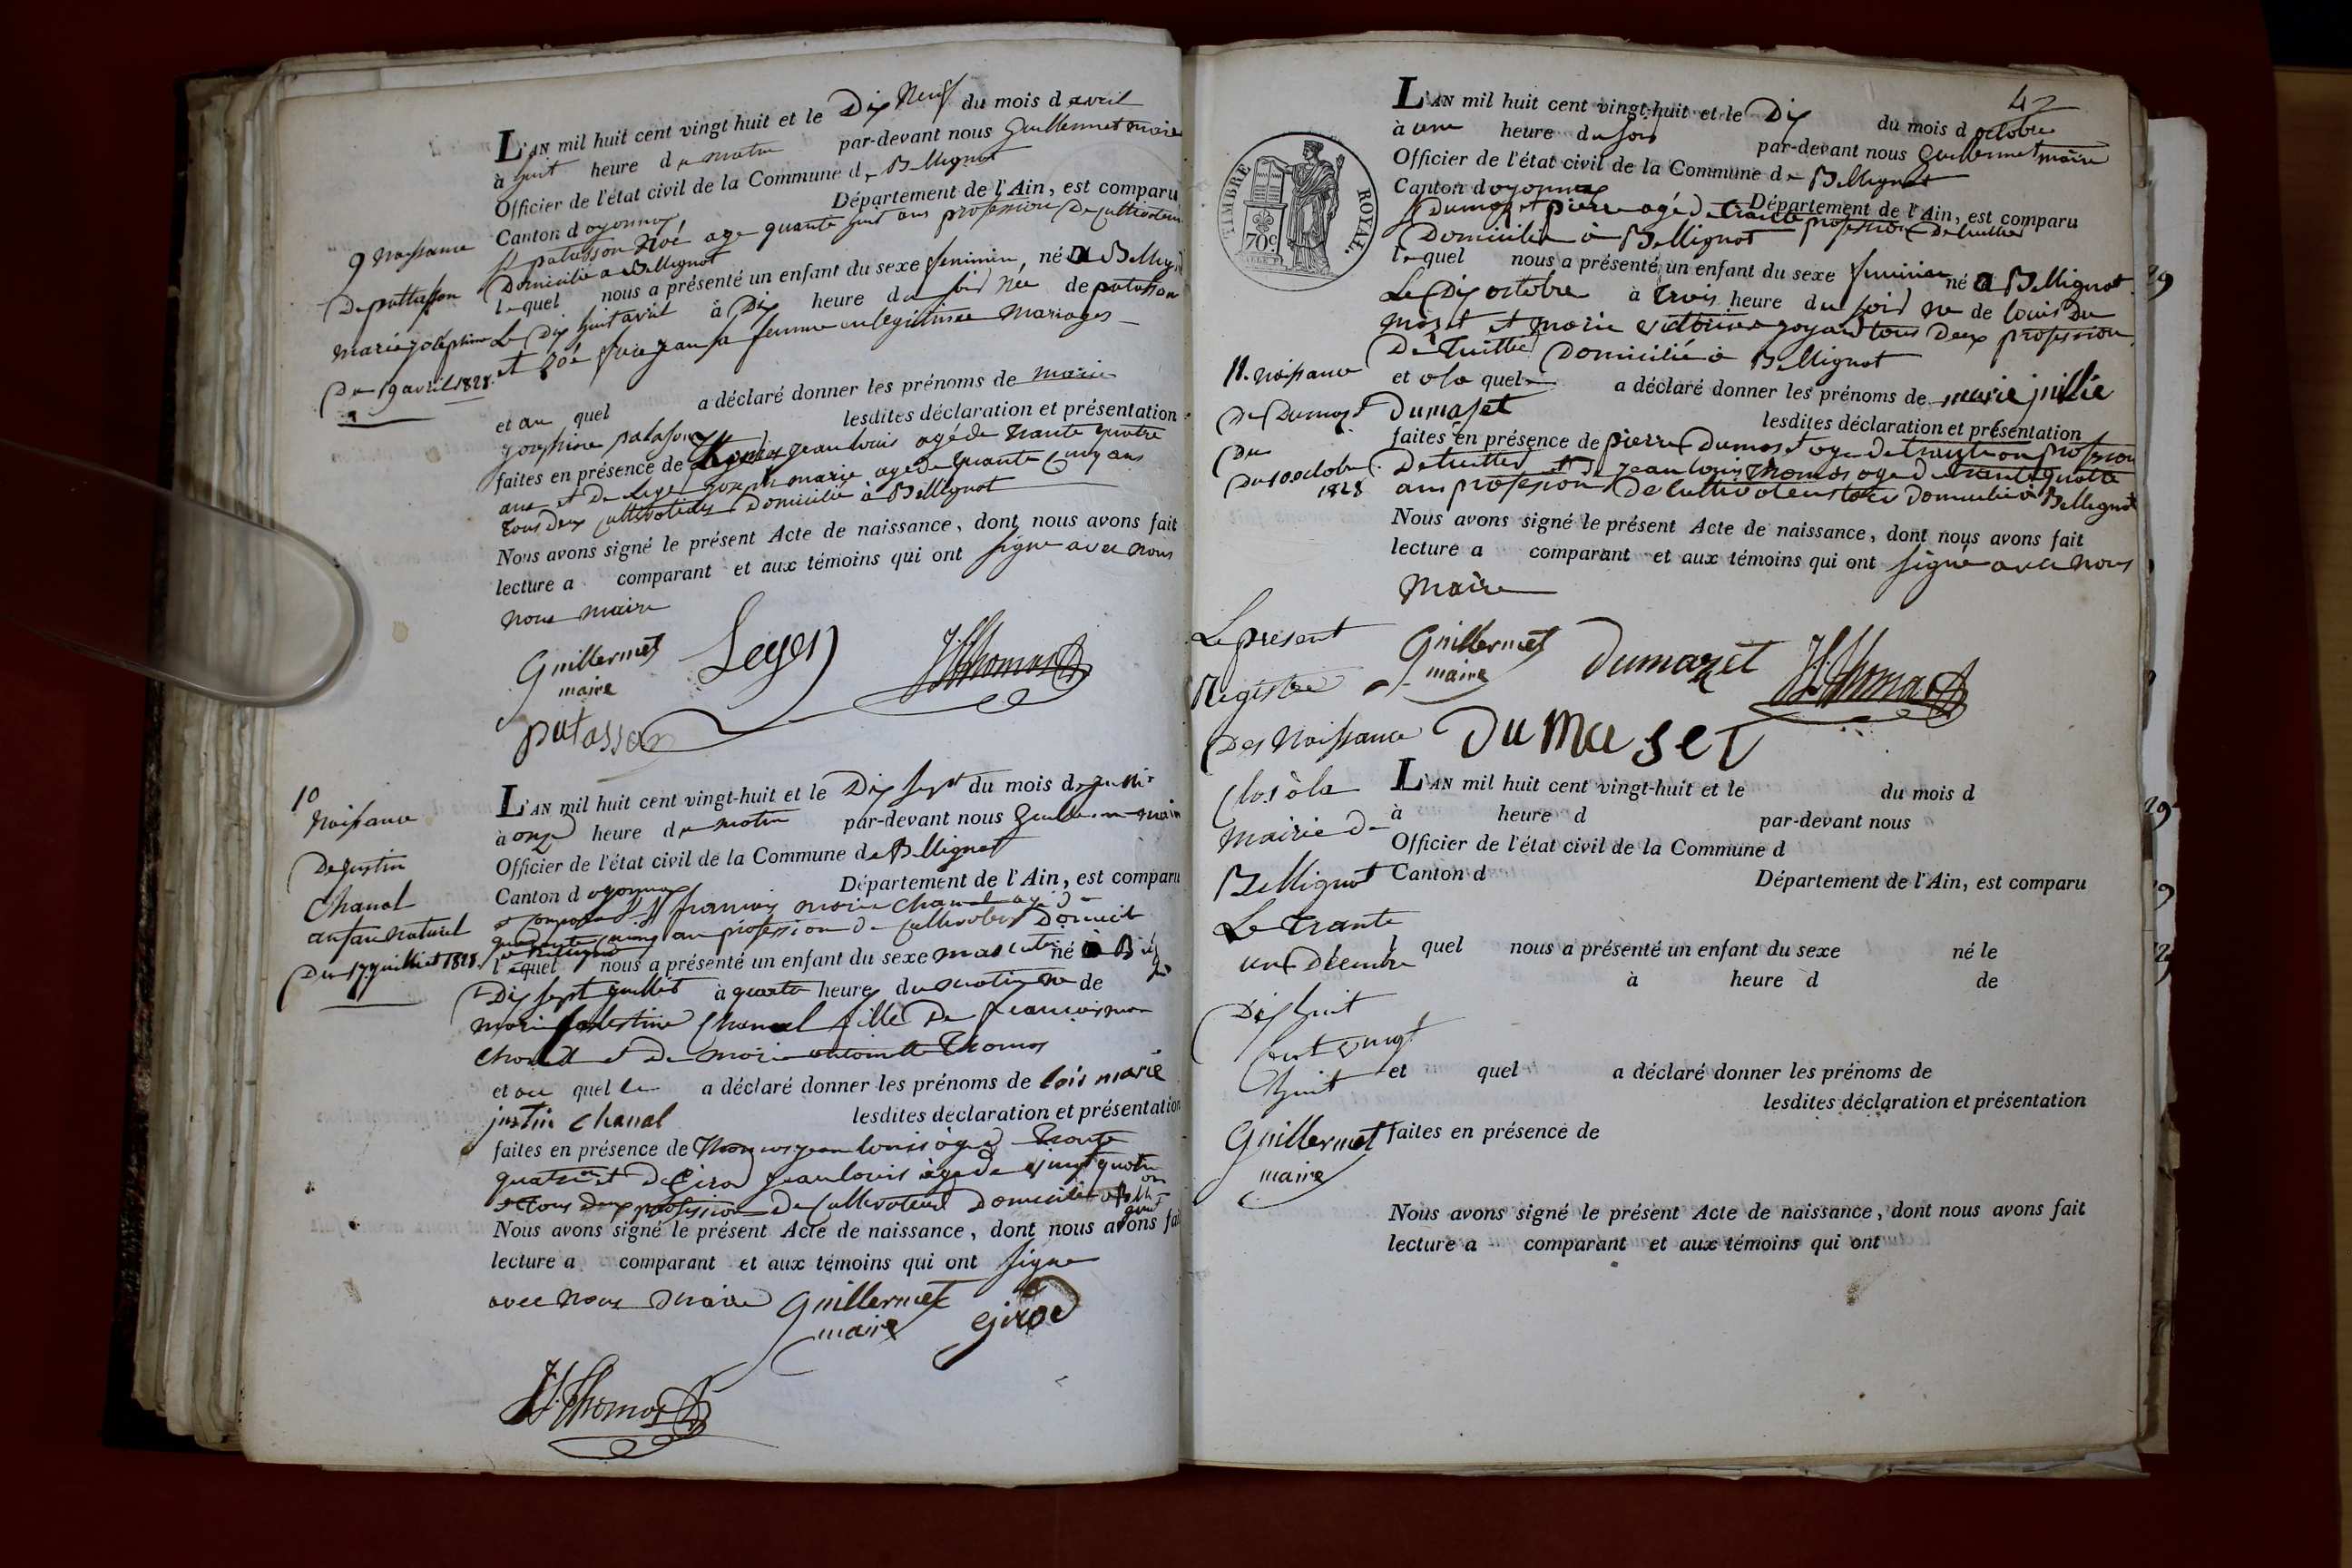 L'AN mil huit cent vingt huit et le Dix Neuf du mois d avril
à huit heure du matin par-devant nous Guillermet maire
Officier de l'état civil de la Commune de Bellignat
Canton d oyonnax Département de l'Ain, est comparu
age quarante huit ans profession De cultivateur
Domicilié a Bellignat
lequel nous a présenté un enfant du sexe feminin, né a
Le Dix huit avril à Dix heure du soir Née de patasson
et sa femme en legitimee Mariages
et au quel a déclaré donner les prénoms de Marie
lesdites déclaration et présentation
faites en présence de jean louis agé de trante quatre
ans et De Leger marie age de quarante cinq ans
tous deux cultivateurs Domicilié a Bellignat
Nous avons signé le présent Acte de naissance, dont nous avons fait
lecture a comparant et aux témoins qui ont signe avec nous
nous maire
9 Naissance
Marie josephine
Du 19 avril 1828.
Guillermet
maire
Leger
JLThomas
patasson
10
Naissance
De justin
Chanal
anfan naturel
Du 17 juilliet 1828.
L'AN mil huit cent vingt-huit et le Dix sept du mois de
à onze heure du matin par-devant nous
Officier de l'état civil de la Commune de Bellignat
Canton d oyonnax Département de l'Ain, est comparu
francois marie Chanal agé de
quarante cinq an profession de cultivateur
lequel nous a présenté un enfant du sexe masculin né a
Dix sept juillet à quatre heure du matin ne de
marie Celestine Chanal fille De francois
Chanal et De marie antoinette Thomas
et au quel le a déclaré donner les prénoms de lois marie
justin Chanal lesdites déclaration et présentation
faites en présence de Thomas jean louis agé de trante
quatre et De Girod jean louis agé de vingt quatre
tous deux profession De cultivateur Domicilié
Nous avons signé le présent Acte de naissance, dont nous avons fait
lecture a comparant et aux témoins qui ont signe
avec nous maire
Guillermet
maire
Girod
JLThomas
42
TIMBRE ROYAL
70c
L'AN mil huit cent vingt-huit et le Dix du mois d octobre
à une heure du soir par-devant nous Guillermet maire
Officier de l'état civil de la Commune de Bellignat
Canton d oyonnax Département de l'Ain, est comparu
Dumaset pierre agé de trante profession
Domicilié à Bellignat
lequel nous a présenté un enfant du sexe feminin né a Bellignat
Le Dix octobre à trois heure du soir ne de louis Du
maset et marie victorine goyard tous deux profession
Domicilié à Bellignat
et a la quel a déclaré donner les prénoms de marie jullie
Dumaset lesdites déclaration et présentation
faites en présence de pierre Dumaset age de trante an profession
et de jean louis Thomas age de trante quatre
ans profession De cultivateur Domicilié à Bellignat
Nous avons signé le présent Acte de naissance, dont nous avons fait
lecture a comparant et aux témoins qui ont signé avec nous
Maire
11. Naissance
Du 10 octobre
1828
Guillermet
maire
dumazet
JLThomas
Dumaset
Le présent
Registre
Des Naissance
Clos à la
Mairie de
Bellignat
Le trante
un Décembre
Dix huit
cent vingt
huit
Guillermet
maire
L'AN mil huit cent vingt-huit et le du mois d
à heure d par-devant nous
Officier de l'état civil de la Commune d
Canton d Département de l'Ain, est comparu
l quel nous a présenté un enfant du sexe né le
à heure d de
et quel a déclaré donner les prénoms de
lesdites déclaration et présentation
faites en présence de
Nous avons signé le présent Acte de naissance, dont nous avons fait
lecture a comparant et aux témoins qui ont